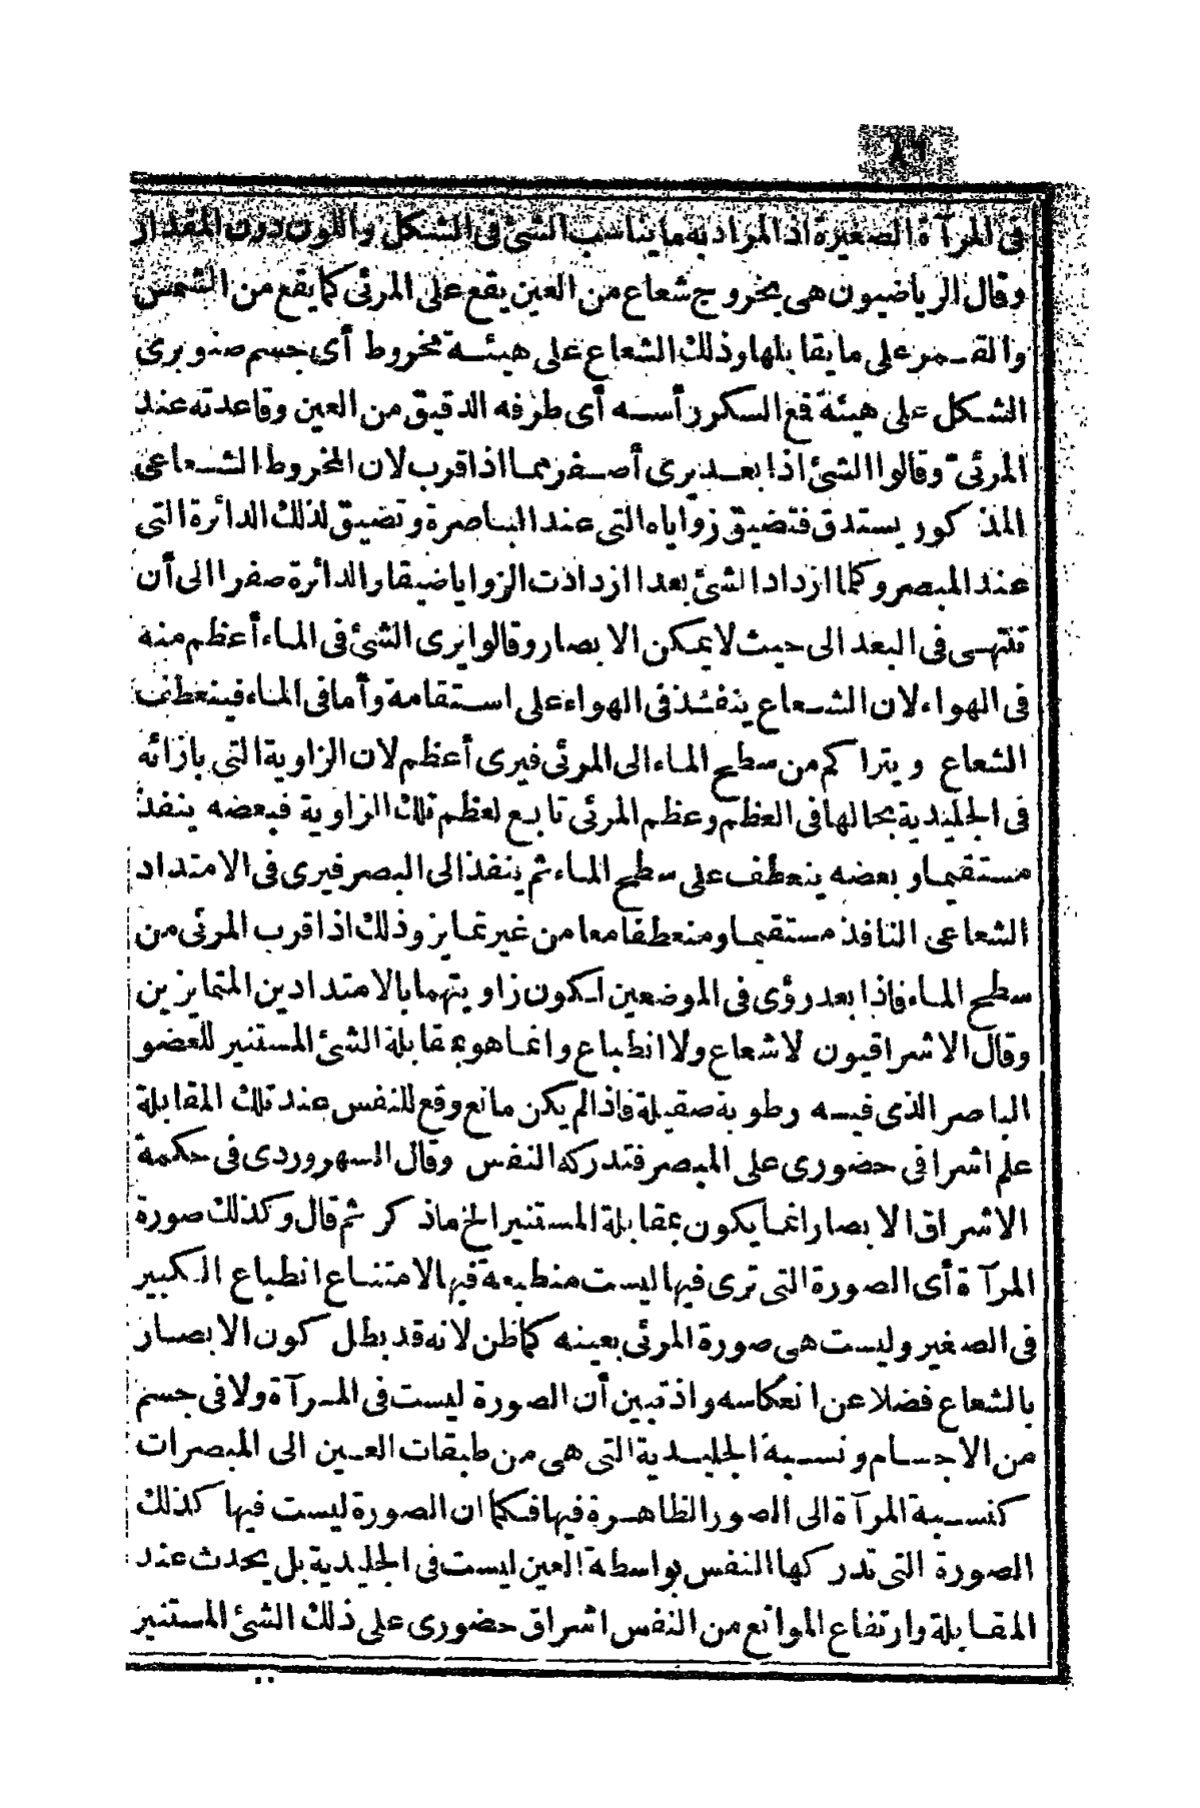 ٨٦
فى المرآة الصغيرة اذ المراد به ما يناسب الشئ فى الشكل واللون دون المقدار
وقال الرياضيون هى بخروج شعاع من العين يقع على المرئى كما يقع من الشمس
والقمر على ما يقابلها وذلك الشعاع على هيئة مخروط أى جسم صنوبرى
الشكل على هيئة قمع السكر رأسه أى طرفه الدقيق من العين وقاعدته عند
المرئى وقالوا الشئ اذا بعد يرى أصغر مما اذا قرب لان المخروط الشعاعى
المذكور يستدق فتضيق زواياه التى عند الباصرة وتضيق لذلك الدائرة التى
عند المبصر وكلما ازداد الشئ بعدا ازدادت الزوايا ضيقا والدائرة صغرا الى أن
تنتهى فى البعد الى حيث لا يمكن الابصار وقالوا يرى الشئ فى الماء أعظم منه
فى الهواء لان الشعاع ينفذ فى الهواء على استقامة وأما فى الماء فينعطف
الشعاع ويتراكم من سطح الماء الى المرئى فيرى أعظم لان الزاوية التى بازائه
فى الجليدية بحالها فى العظم وعظم المرئى تابع لعظم تلك الزاوية فبعضه ينفذ
مستقيما وبعضه ينعطف على سطح الماء ثم ينفذ الى البصر فيرى فى الامتداد
الشعاعى النافذ مستقيما ومنعطفا معا من غير تمايز وذلك اذا قرب المرئى من
سطح الماء فاذا بعد رؤى فى الموضعين لكون زاويتهما بالامتدادين المتمايزين
وقال الاشراقيون لا شعاع ولا انطباع وانما هو بمقابلة الشئ المستنير للعضو
الباصر الذى فيه رطوبة صقيلة فاذا لم يكن مانع وقع للنفس عند تلك المقابلة
علم اشراقى حضورى على المبصر فتدركه النفس وقال السهروردى فى حكمة
الاشراق الابصار انما يكون بمقابلة المستنير الخ ماذكر ثم قال وكذلك صورة
المرآة أى الصورة التى ترى فيها ليست منطبعة فيها لامتناع انطباع الكبير
فى الصغير وليست هى صورة المرئى بعينه كما ظن لانه قد بطل كون الابصار
بالشعاع فضلا عن انعكاسه واذ تبين أن الصورة ليست فى المرآة ولا فى جسم
من الاجسام ونسبة الجليدية التى هى من طبقات العين الى المبصرات
كنسبة المرآة الى الصور الظاهرة فيها فكما ان الصورة ليست فيها كذلك
الصورة التى تدركها النفس بواسطة العين ليست فى الجليدية بل يحدث عند
المقابلة وارتفاع الموانع من النفس اشراق حضورى على ذلك الشئ المستنير